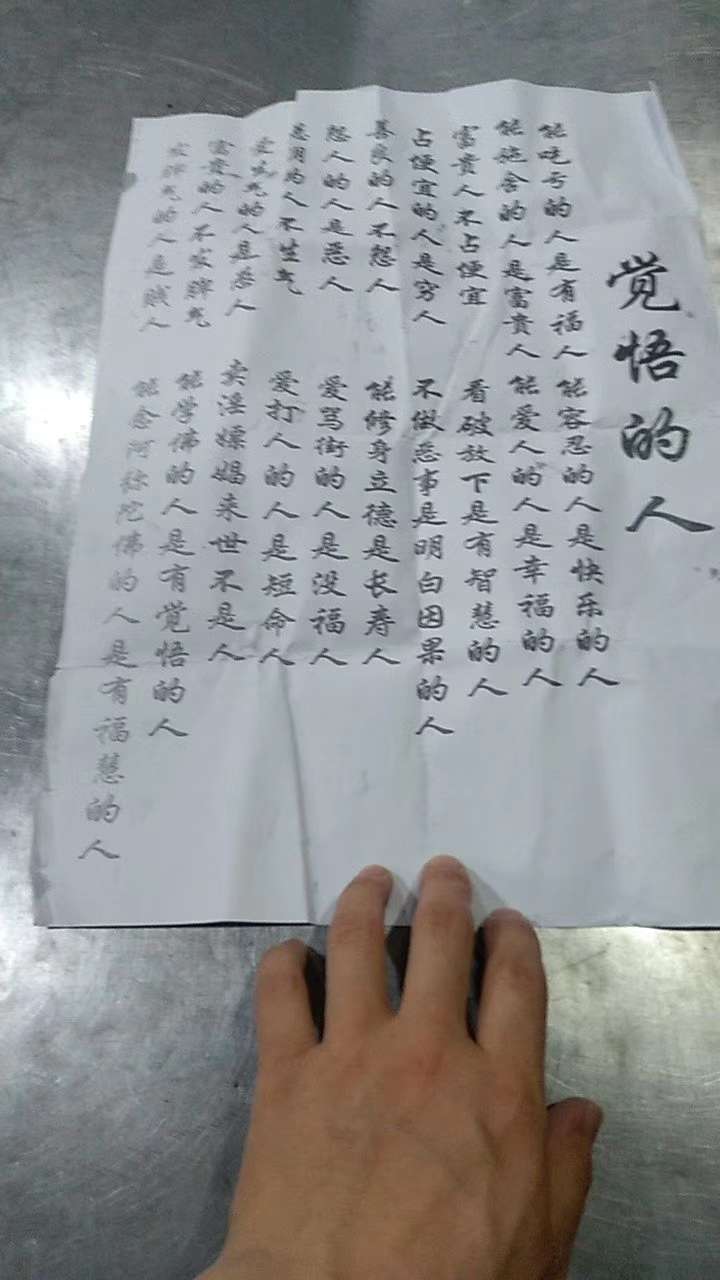 觉悟的人
能吃亏的人是有福人
能施舍的人是富贵人
富贵人不占便宜
占便宜的人是穷人
善良的人不怨人
怨人的人是恶人
明的人不生气
爱生气的人是愚人
富贵的人不发脾气
发脾气的人是贱人
能容忍的人是快乐的人
能爱人的人是幸福的人
看破放下是有智慧的人
不做恶事是明白因果的人
能修身立德是长寿人
爱骂街的人是没福人
爱打人的人是短命人
卖淫嫖娼来世不是人
能学佛的人是有觉悟的人
能念阿弥陀佛的人是有福慧的人